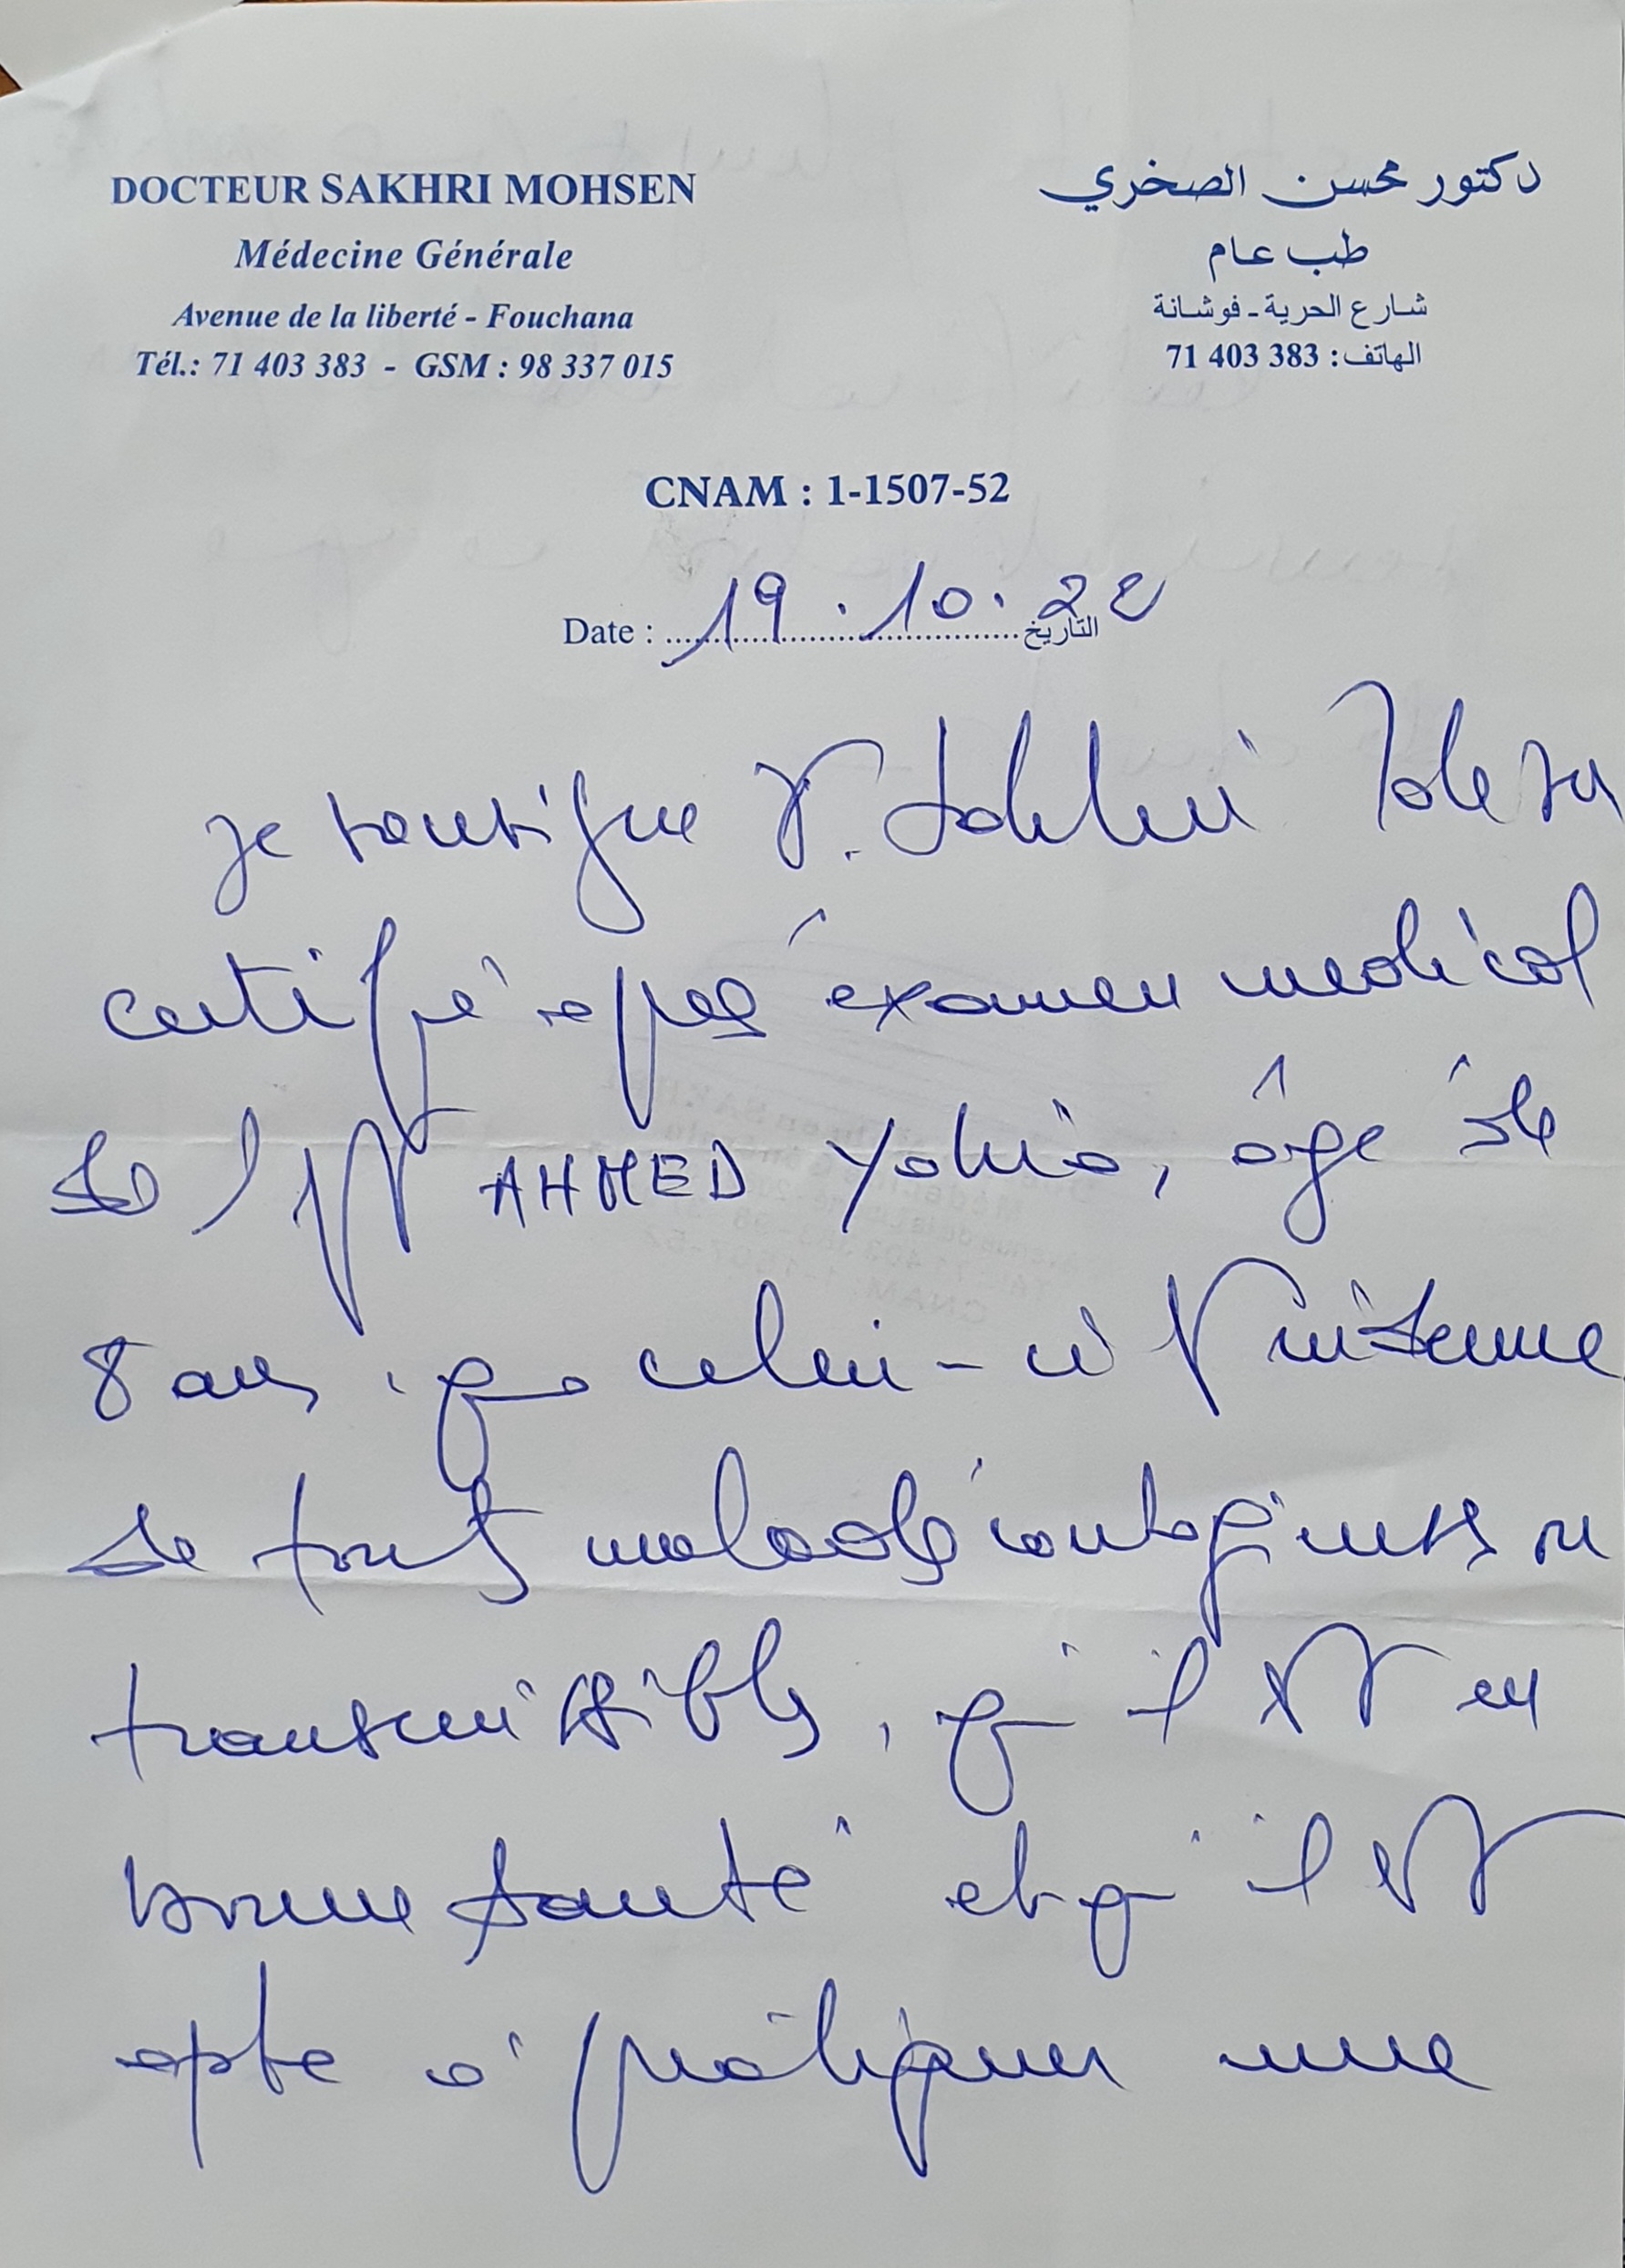 DOCTEUR SAKHRI MOHSEN
Médecine Générale
Avenue de la liberté - Fouchana
Tél.: 71 403 383 - GSM : 98 337 015
دكتور محسن الصخري
طب عام
شارع الحرية - فوشانة
الهاتف: 383 403 71
CNAM : 1-1507-52
Date : 19.10.22 التاريخ
je soussigne Dr. Sakhri Mohsen
certifie après examen medical
de l' AHMED Yahia, âgé de
8 ans, que celui-ci indemne
de toute maladie contagieuse ou
transmissible, qu'il est en
bonne santé et qu'il est
apte à pratiquer une